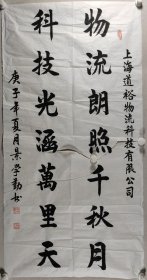 上海道裕物流科技有限公司
物流朗照千秋月
科技光涵萬里天
庚子年夏月景学勤书